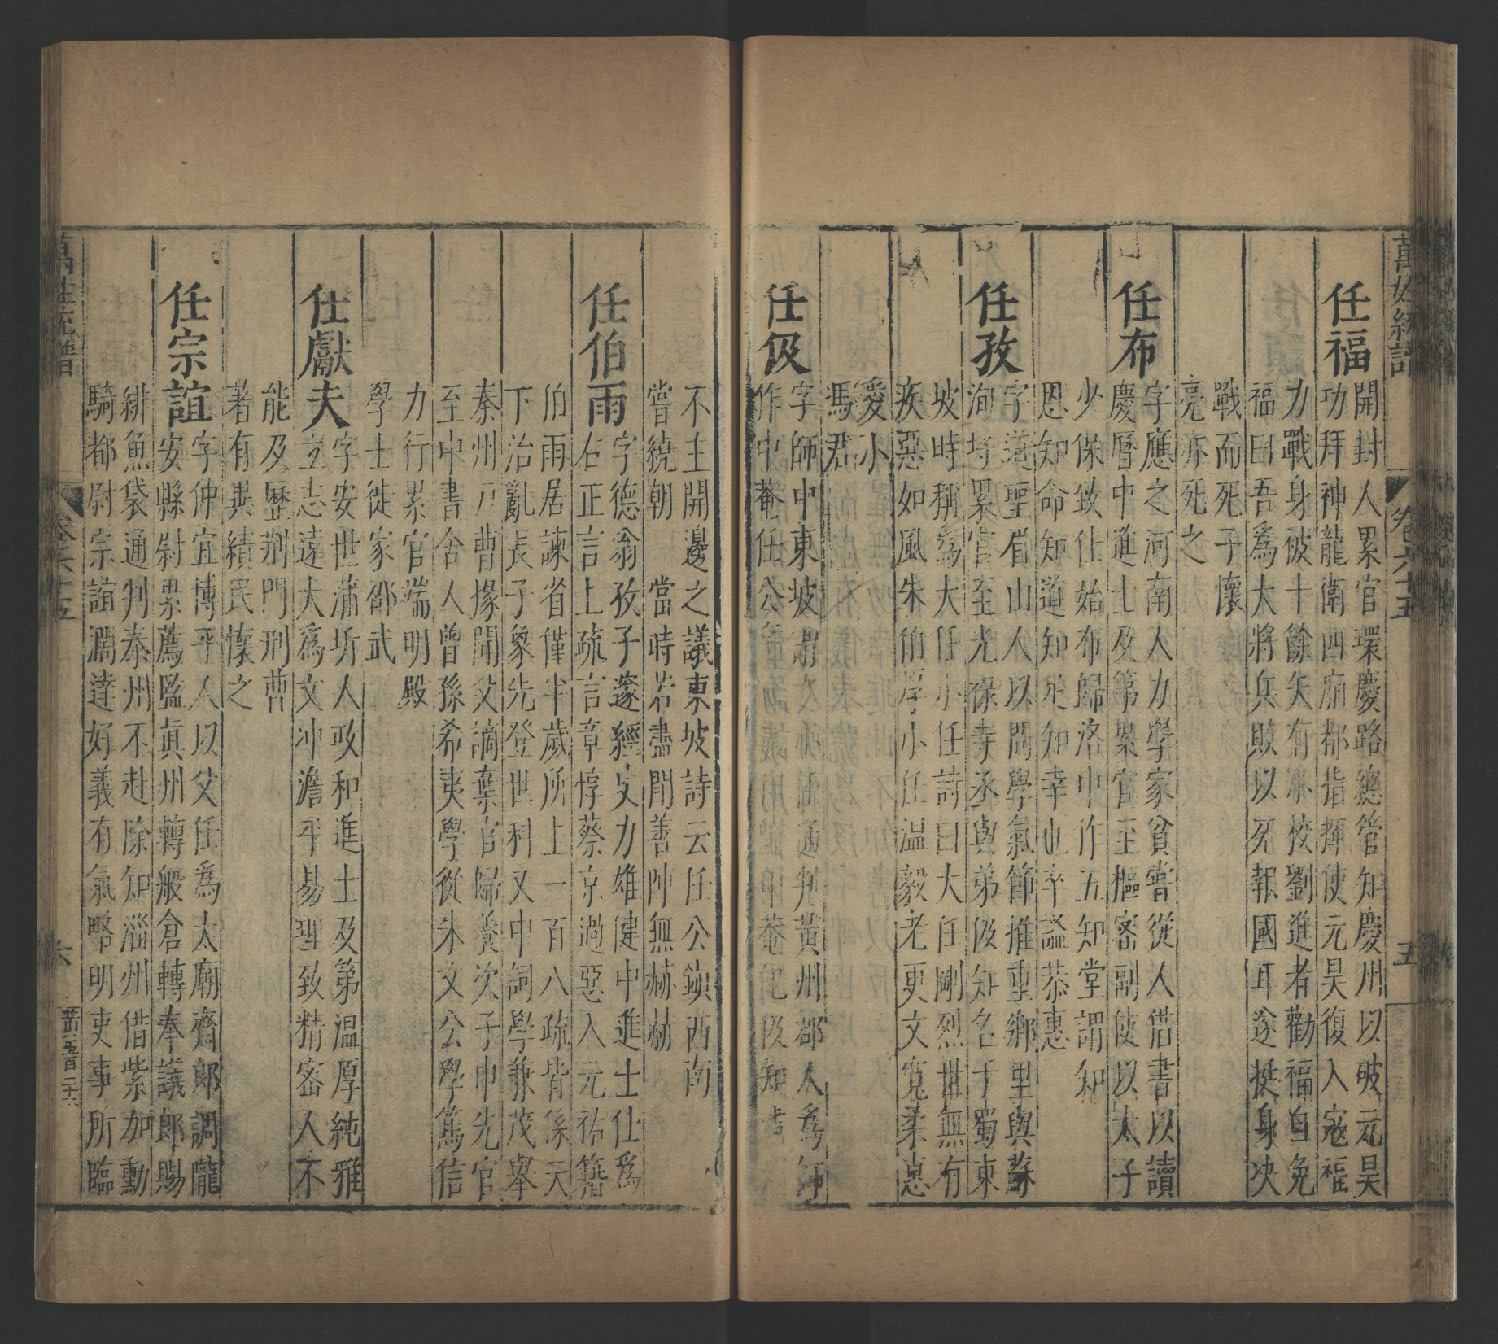 萬姓統譜 卷六十五 五
任福
開封人累官環慶路總管知慶州以破元昊
功拜神龍衛四廂都指揮使元昊復入寇福
力戰身被十餘矢有小校劉進者勸福自免
福曰吾爲大將兵敗以死報國耳遂挺身决
戰而死子懷
亮亦死之
任布
字應之河南人力學家貧嘗從人借書以讀
慶曆中進士及第累官至樞密副使以太子
少保致仕始布歸洛中作五知堂謂知
恩知命知道知足知幸也卒諡恭惠
任孜
字遵聖眉山人以問學氣節推重鄉里與蘇
洵埒累官至光祿寺丞與弟伋知名于蜀東
坡時稱爲大任小任詩曰大任剛烈世無有
疾惡如風朱伯厚小任温毅老更文寬柔惠
愛小
馮君
任伋
字師中東坡謂 通判黃州郡人爲師
作中菴任公 菴記伋知
不主開邊之議東坡詩云任公鎮西南
嘗繞朝 當時若盡用善陣無赫赫
任伯雨
字德翁孜子邃經文力雄健中進士仕爲
右正言上疏言章惇蔡京過惡入元祐籍
伯雨居諫省僅半歲所上一百八疏皆係天
下治亂長子象先登世科又中詞學兼茂舉
秦州戸曹掾聞父謫棄官歸養次子申先官
至中書舍人曾孫希夷學從朱文公學篤信
力行累官端明殿
學士徙家邵武
任獻夫
字安世蒲圻人政和進士及第温厚純雅
立志遠大爲文冲澹平易理致精密人不
能及歷荆門刑曹
著有異績民懷之
任宗誼
字仲宜博平人以父任爲太廟齋郎調隴
安縣尉累薦監眞州轉般倉轉奉議郎賜
緋魚袋通判泰州不赴除知淄州借紫加勳
騎都尉宗誼濶達好義有氣略明吏事所臨
萬姓統譜 卷六十五 六